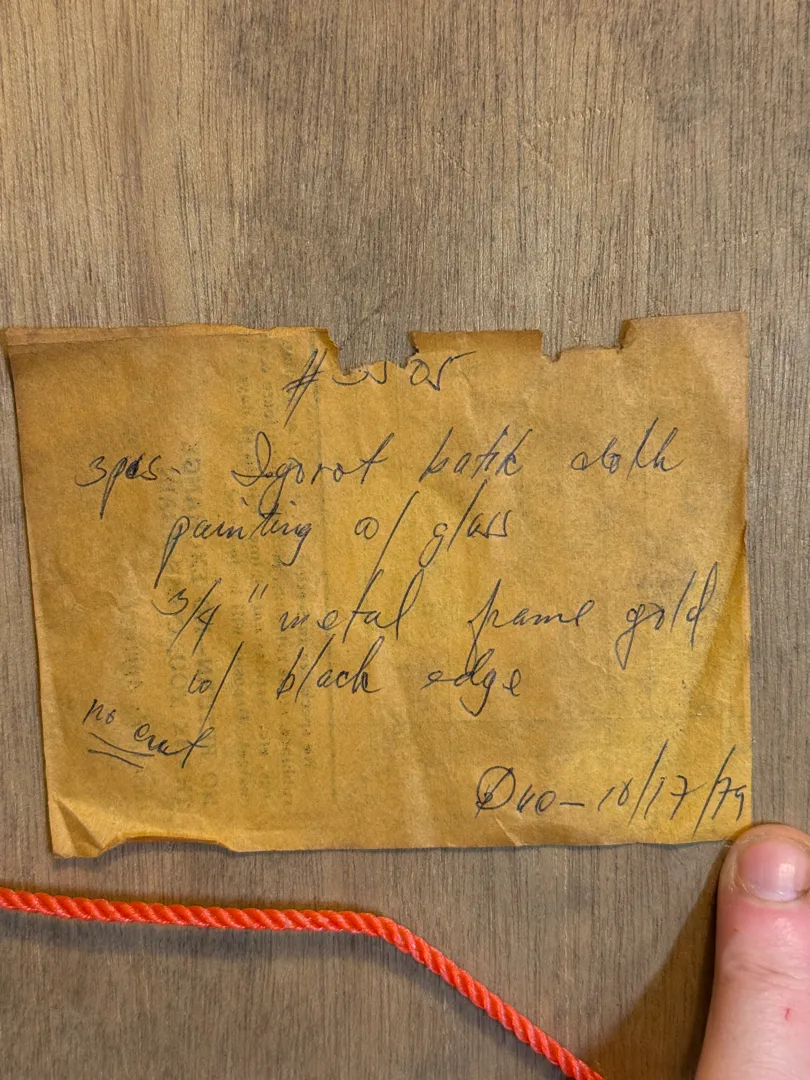 # 3505
3pcs. Igorot batik cloth
painting w/ glass
3/4" metal frame gold
w/ black edge
no cut
Due - 10/17/79